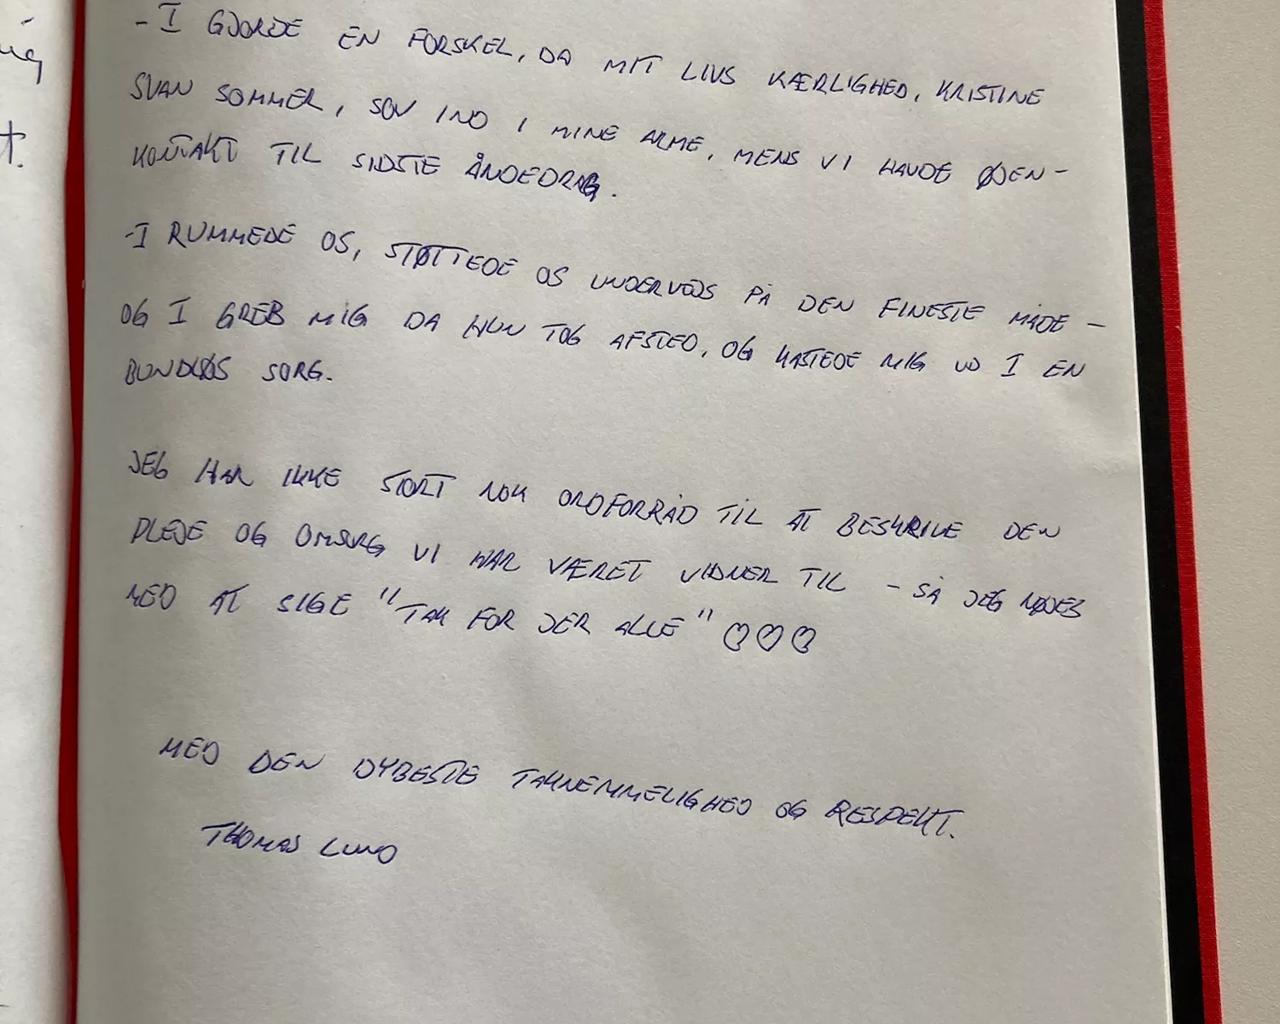 - I GJORDE EN FORSKEL, DA MIT LIVS KÆRLIGHED, KRISTINE
SVAN SOMMER, SOV IND I MINE ARME, MENS VI HAVDE ØJEN-
KONTAKT TIL SIDSTE ÅNDEDRAG.
-I RUMMEDE OS, STØTTEDE OS UNDERVEJS PÅ DEN FINESTE MÅDE -
OG I GREB MIG DA HUN TOG AFSTED, OG KASTEDE MIG UD I EN
BUNDLØS SORG.
JEG HAR IKKE STORT NOK ORDFORRÅD TIL AT BESKRIVE DEN
PLEJE OG OMSORG VI HAR VÆRET VIDNER TIL - SÅ JEG NØJES
MED AT SIGE "TAK FOR JER ALLE" ♡♡♡
MED DEN DYBESTE TAKNEMMELIGHED OG RESPEKT.
THOMAS LUND